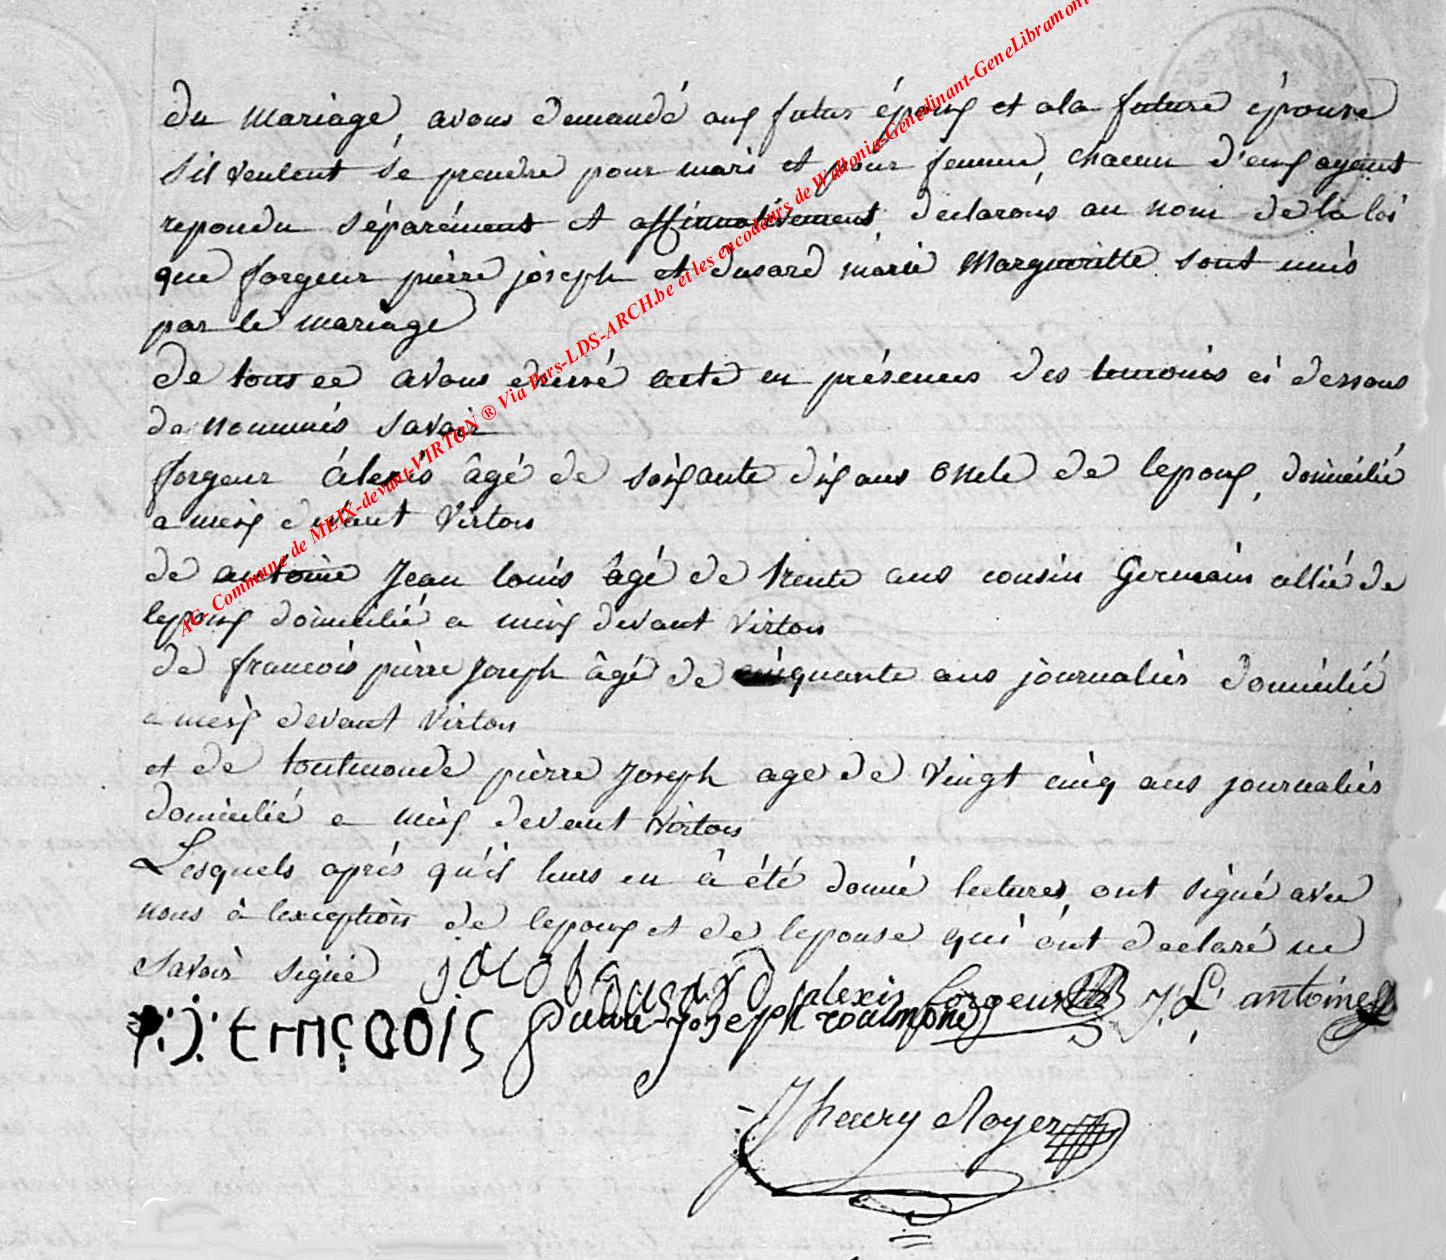 du mariage, avons demandé aux futur époux et ala future épouse
s'il veulent se prendre pour mari et pour femme, chacun d'eux ayant
repondu séparément et affirmativement, declarons au nom de la loi
que forgeur pierre joseph et dusard marie Margueritte sont unis
par le mariage
De tout ce avons dressé acte en présences des temoins ci dessous
denommés savoir
forgeur Alexis âgé de soixante dix ans oncle de lepoux, domicilié
a meix devant Virton
de antoine Jean louis âgé de trente ans cousin Germain allié de
lepoux domicilié a meix devant Virton
de francois pierre Joseph âgé de cinquante ans journalier domicilié
a meix devant Virton
et de toutmonde pierre Joseph age de vingt cinq ans journalier
domicilié a meix devant Virton
Lesquels après qu'il leurs en à été donné lectures, ont signé avec
nous à lexception de lepoux et de lepouse qui ont declaré ne
savoir signé jacob dusard alexis forgeur J. L. antoine
P. J. francois pierre-joseph
J henry Royer
AC. Commune de MEIX-devant-VIRTON ® Via Pars-LDS-ARCH.be et les encodeurs de Wallonia-Genedinant-GeneLibramont